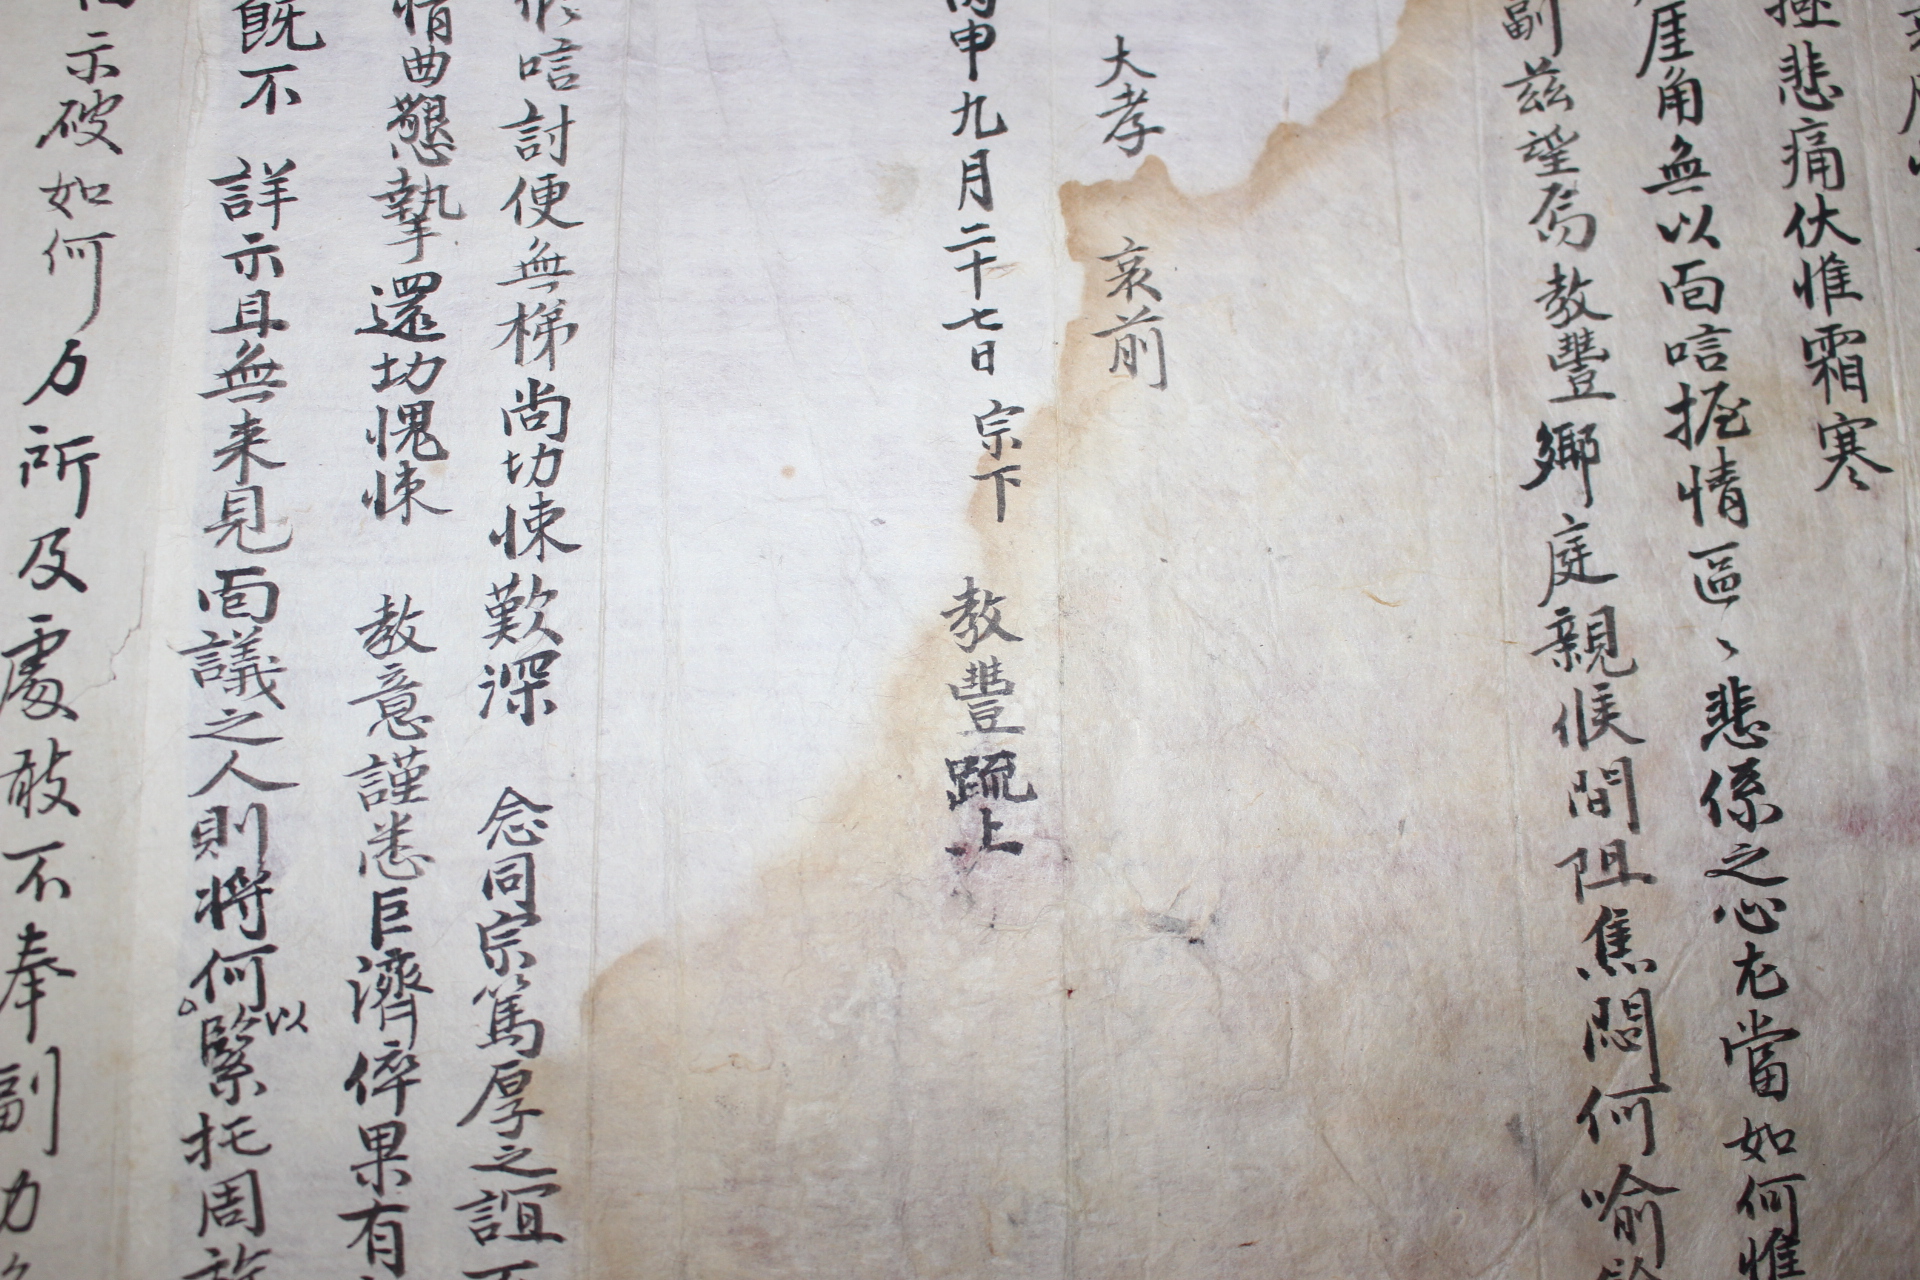 極悲痛伏惟霜寒
厓角無以面唁握情區〻悲係之心尤當如何惟
副兹望焉敎豐鄕庭親候間阻焦悶何喩
大孝 哀前
丙申九月二十七日 宗下 敎豐䟽上
唁討便無梯尙切悚歎深 念同宗篤厚之誼不
情曲懇摯還切愧悚 敎意謹悉巨濟倅果有
旣不 詳示且無來見面議之人則將何以緊托周旋
示破如何力所及處敢不奉副力